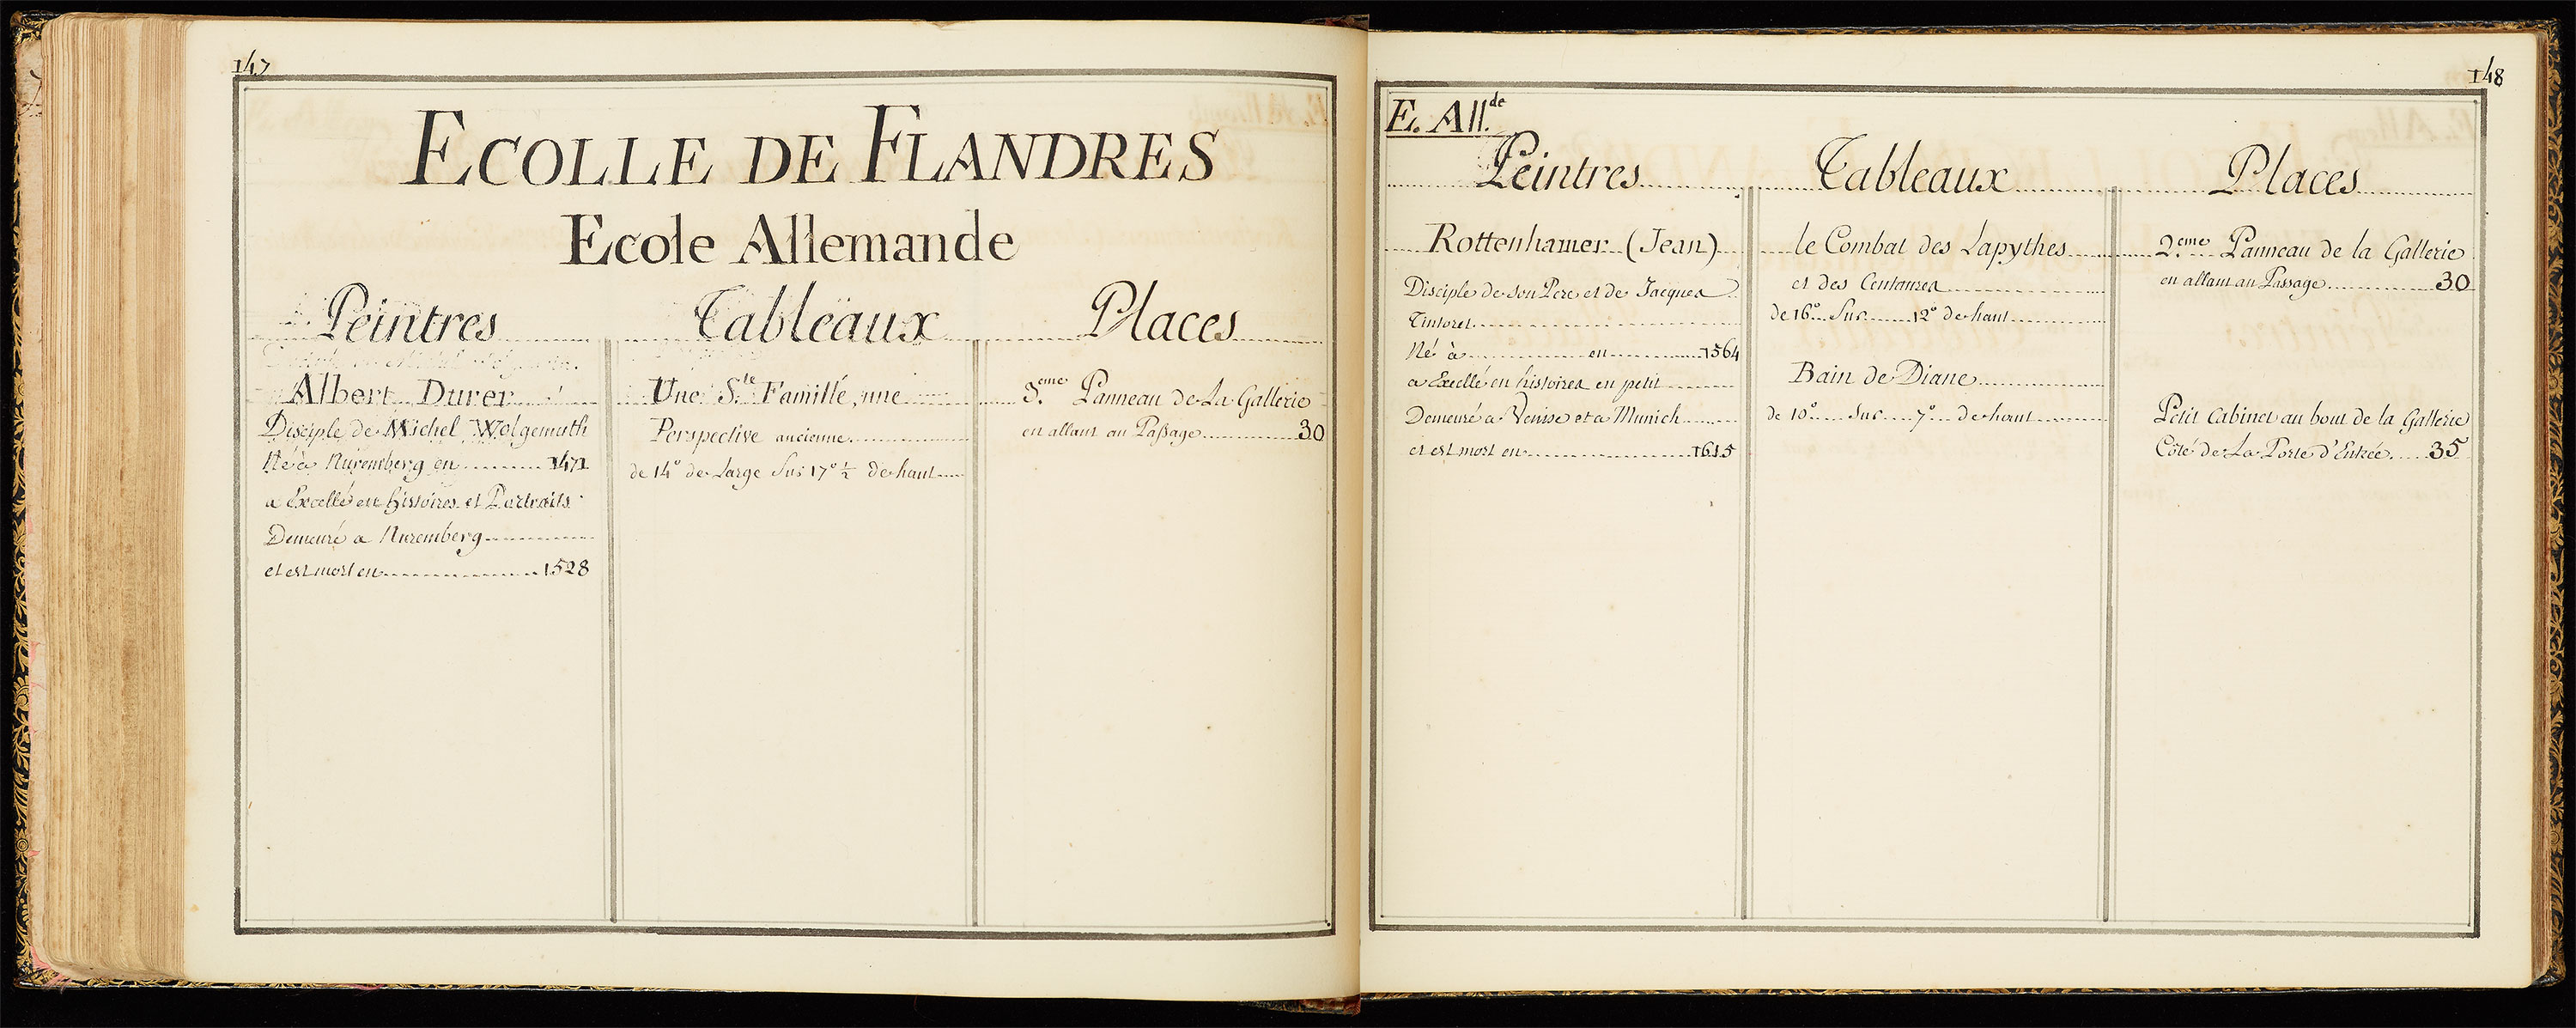 147
ECOLLE DE FLANDRES
Ecole Allemande
Peintres Tableaux Places
Albert Durer
Disciple de Michel Wolgemuth
Né à Nuremberg en 1471
a Excellé en histoires et Portraits
Demeuré a Nuremberg
et est mort en 1528
Une S.te Famille, une
Perspective ancienne
de 14° de Large Sur 17° ½ de haut
3.eme Panneau de La Gallerie
en allant au Passage 30
148
E. All.de
Peintres Tableaux Places
Rottenhamer (Jean)
Disciple de Son Pere et de Jacques
Tintoret
Né à en 1564
a Excellé en histoires en petit
Demeuré a Venise et a Munich
et est mort en 1615
le Combat des Lapythes
et des Centaures
de 16° Sur 12° de haut
Bain de Diane
de 10° Sur 7° de haut
2.eme Panneau de la Gallerie
en allant au Passage 30
Petit Cabinet au bout de la Gallerie
Côté de La Porte d'Entrée 35